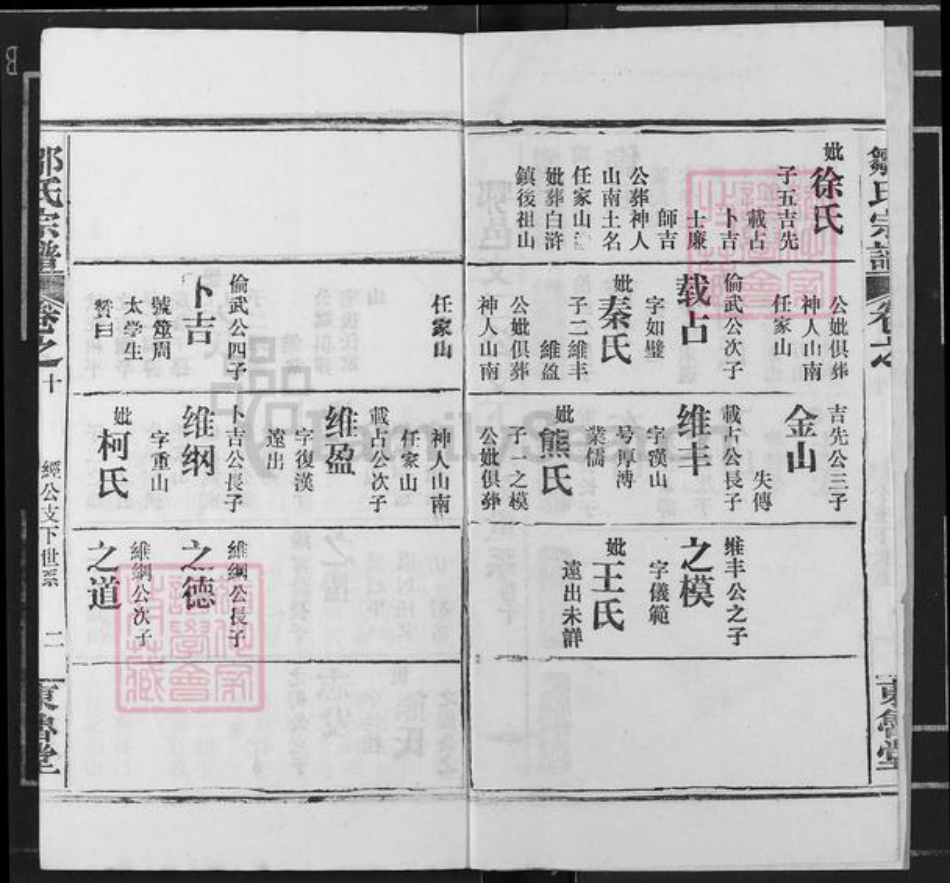 鄒氏宗譜
卷之
東魯堂
妣徐氏
子五吉先
載占
卜吉
士廉
師吉
公葬神人
山南土名
任家山
妣葬白滸
鎮後祖山
公妣俱葬
神人山南
任家山
倫武公次子
载占
字如璧
妣秦氏
子二維丰
維盈
公妣俱葬
神人山南
任家山
倫武公四子
卜吉
號螢周
太学生
贊曰
吉先公三子
金山
失傳
載占公長子
维丰
字漢山
号厚溥
業儒
妣熊氏
子之模
公妣俱葬
神人山南
任家山
載占公次子
维盈
字復漢
遠出
卜吉公長子
维纲
字重山
妣柯氏
維丰公之子
之模
字儀範
妣王氏
遠出未詳
維綱公長子
之德
維綱公次子
之道
鄒氏宗譜
卷之十
經公支下世系
二
東魯堂